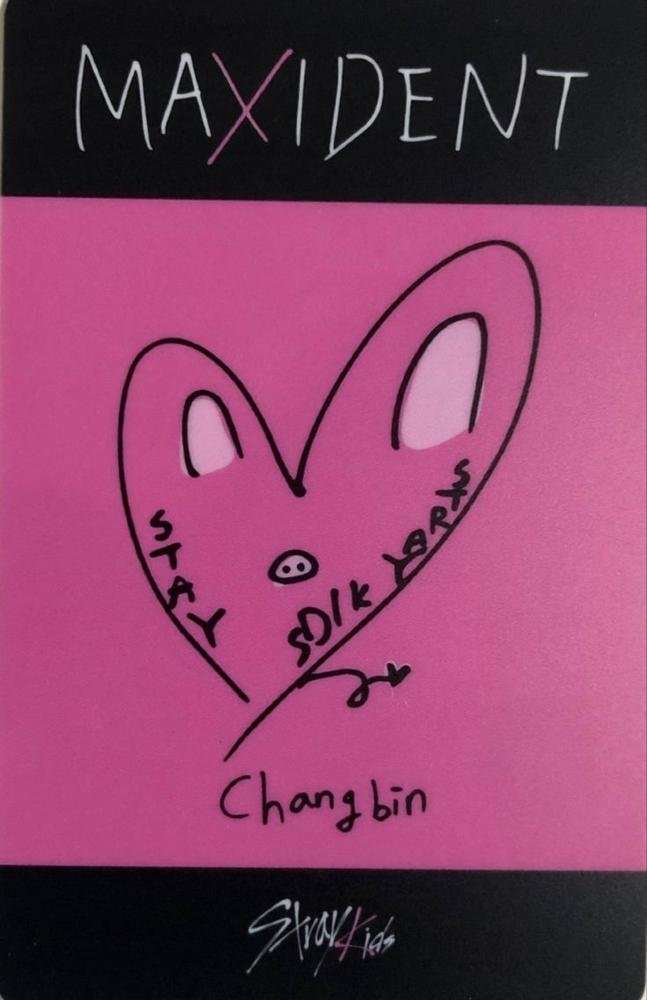 MAXIDENT
STAY
STRAY KIDS
Changbin
Stray Kids